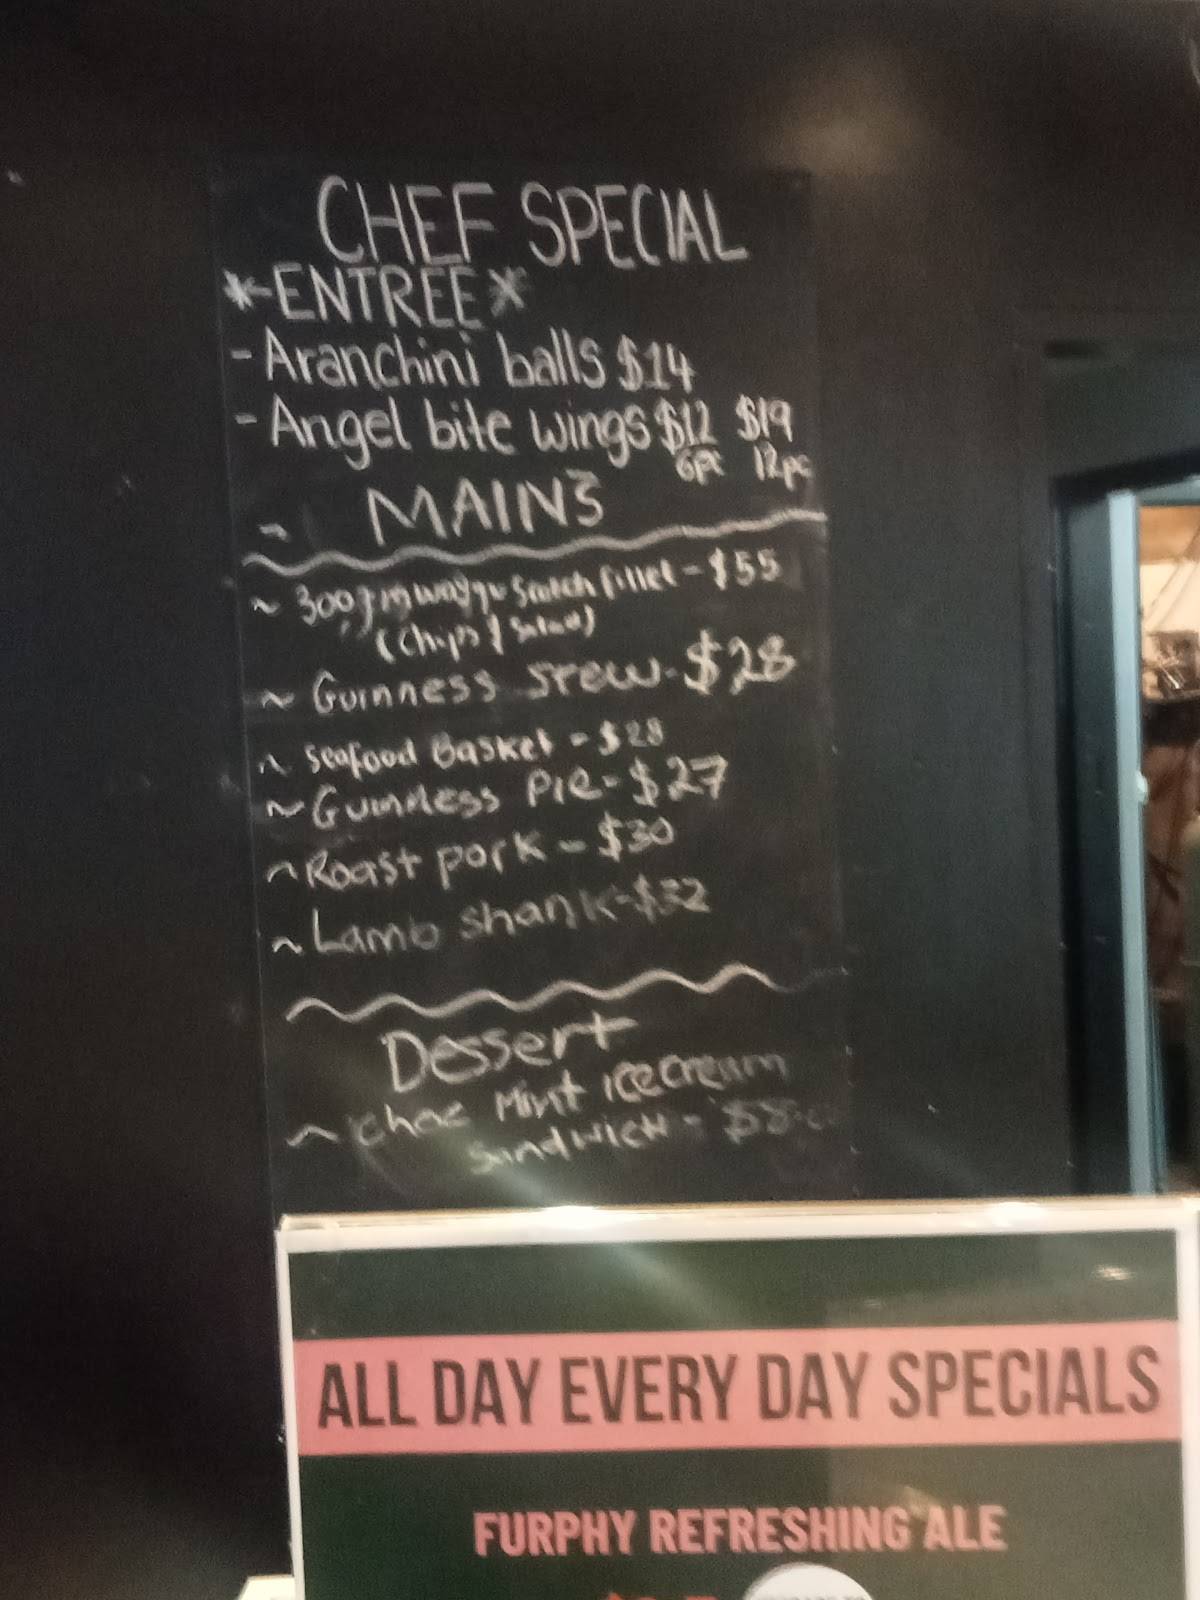 CHEF SPECIAL
*-ENTREE*
- Aranchini balls $14
- Angel bite wings $12 $19
6pc 12pc
~ MAINS
~ 300gm wagyu Scotch fillet - $55
(Chips & Salad)
~ Guinness stew - $28
~ Seafood Basket - $28
~ Guinness Pie - $27
~ Roast pork - $30
~ Lamb shank - $32
Dessert
~ choc Mint icecream
sandwich - $8
ALL DAY EVERY DAY SPECIALS
FURPHY REFRESHING ALE